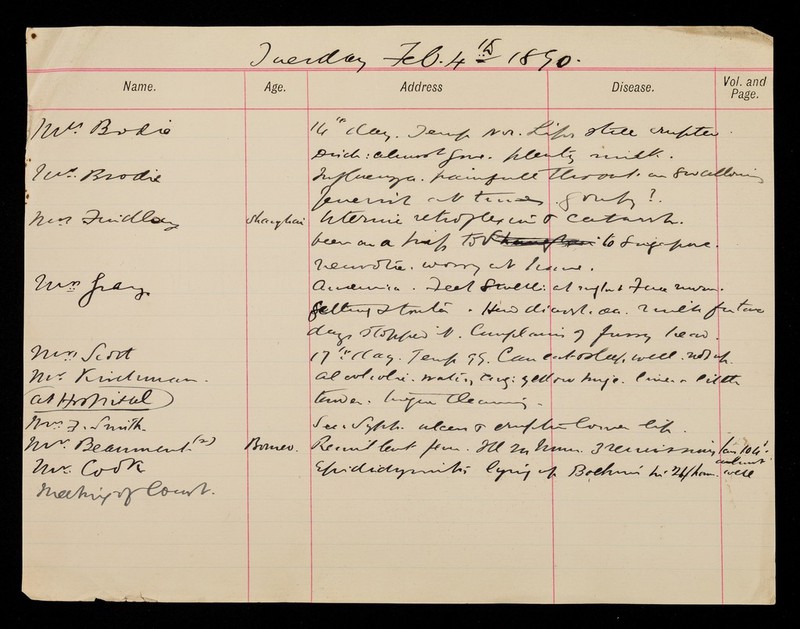 Tuesday Feb. 4th 1890.
Name. Age. Address Disease. Vol. and Page.
Mrs Brodie 14th day. Temp nor. Lips still erupted.
almost gone. plenty milk.
Mr. Brodie Influenza. painful throat on swallowing
feverish at times. gouty?.
Mrs Findlay Shanghai Uterine retroflexion & catarrh.
been on a trip to Shanghai to Singapore.
neurotic. worry at home.
Mrs Gray Anaemia. Feet swell: at night & Face morn.
getting stouter. Had diarrh. milk for two
days stopped it. Complains of fussy head.
Mrs Scott 17th day. Temp 99. Can eat & sleep well.
Mr. Kirchmann. Alcoholic. yellow tinge. liver a little
at Hospital tender. tongue cleaning.
Mrs J. Smith. Sec. Syph. ulcers & eruption lower lip.
Mr. Beaumont (2) Borneo. Remittent fever. Ill 2m. 3 remissions
Mr. Cook Epididymitis lying up 24/hours. almost well
Meeting of Court.